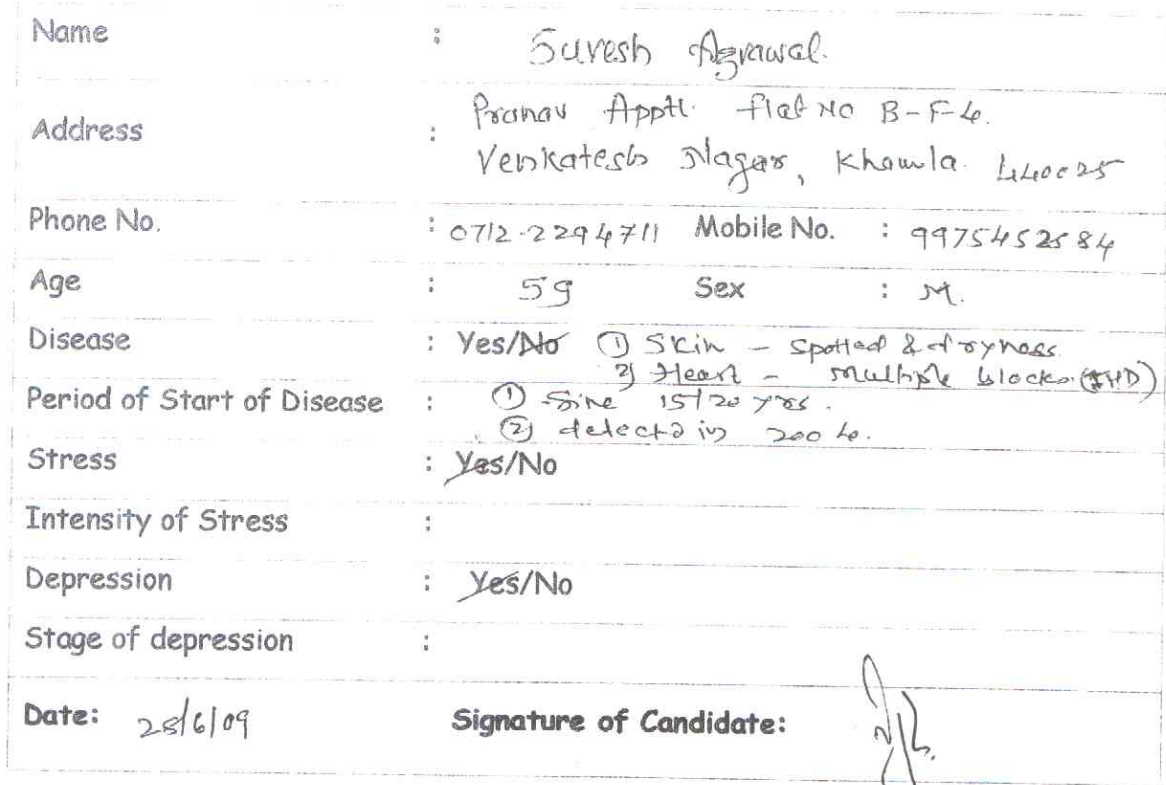 Name : Suresh Agrawal.
Address : Pranav Apptt. flat No B-F-4.
Venkatesh Nagar, Khamla. 440025
Phone No. : 0712-2294711 Mobile No. : 9975452584
Age : 59 Sex : M.
Disease : Yes/No ① Skin - spotted & dryness.
2) Heart - Multiple blocks. (IHD)
Period of Start of Disease : ① Sine 15/20 yrs.
② detectd in 2004.
Stress : Yes/No
Intensity of Stress :
Depression : Yes/No
Stage of depression :
Date: 28/6/09 Signature of Candidate: